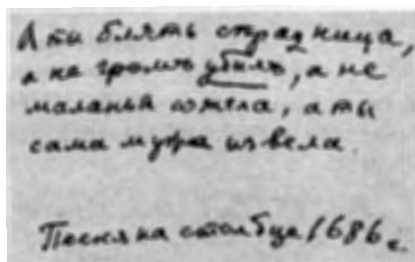 А ты блять страдница,
а не громъ убилъ, а не
маланья сожгла, а ты
сама мужа извела.
Песня на столбце 1686 г.